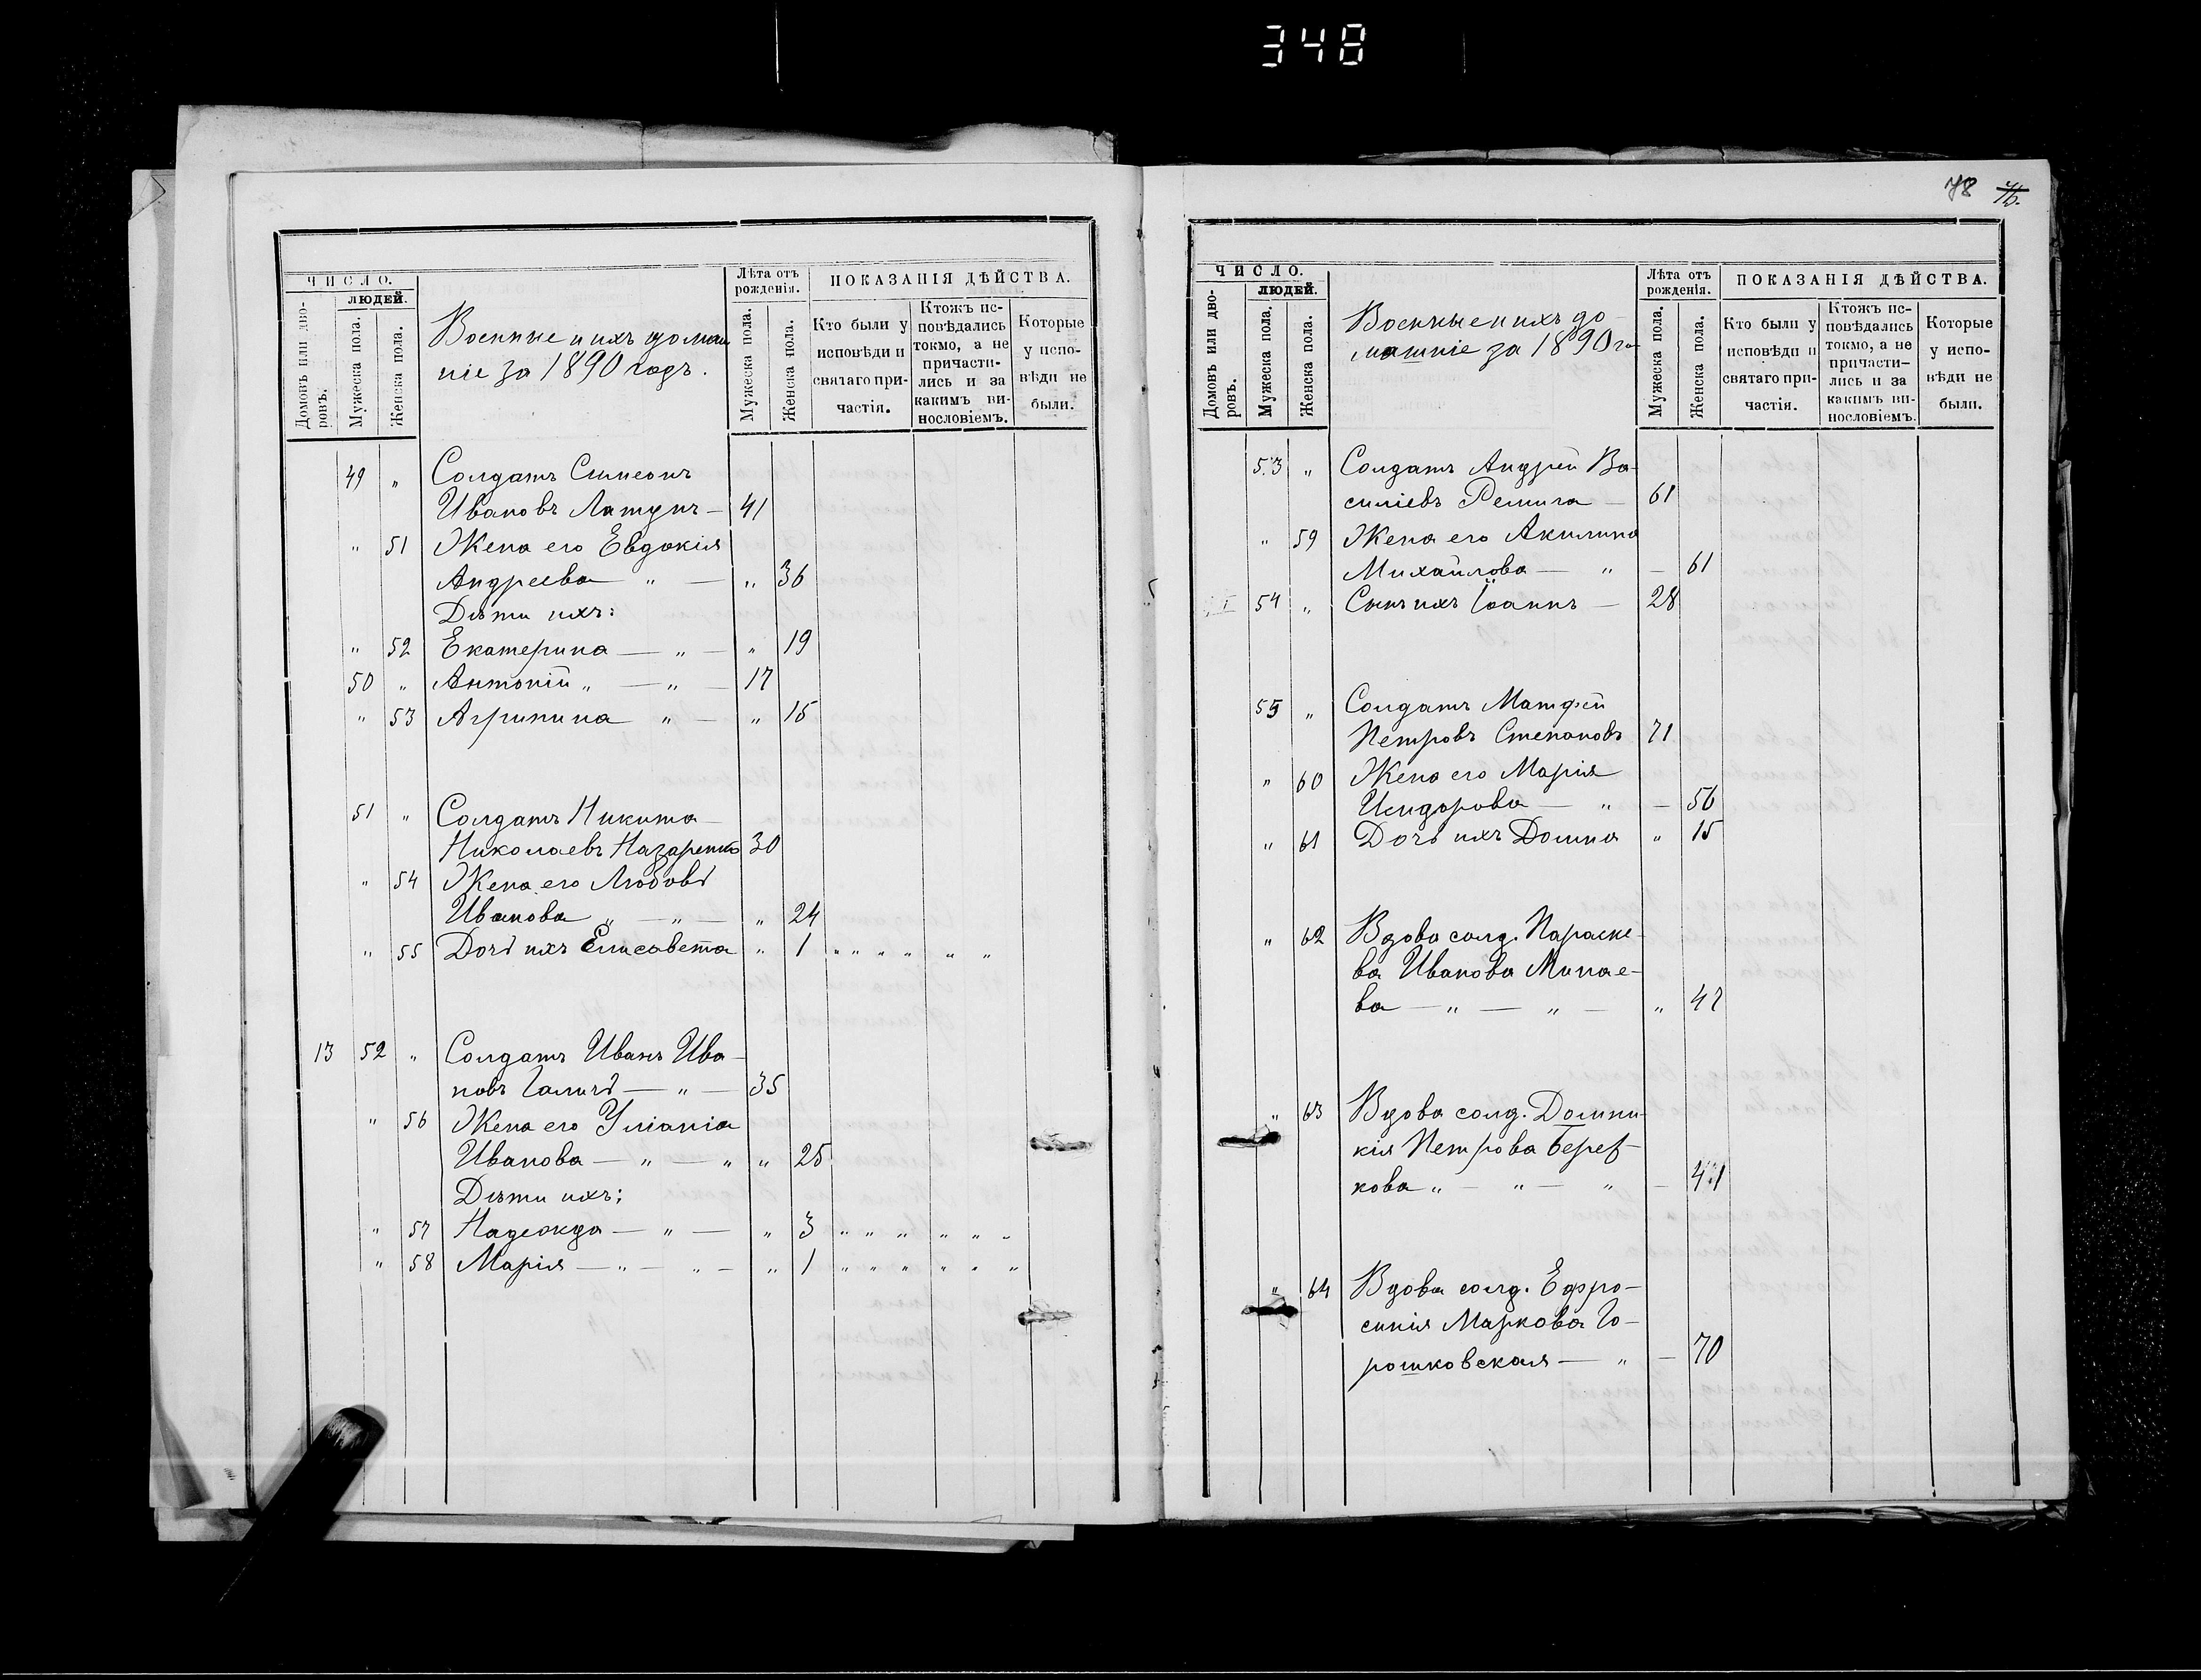 348
78 76.
ЧИСЛО.
ЛЮДЕЙ.
Домовъ или дво-
ровъ.
Мужеска пола.
Женска пола.
Военные и ихъ домаш
ніе за 1890 годъ.
Лѣта отъ
рожденія.
Мужеска пола.
Женска пола.
ПОКАЗАНІЯ ДѢЙСТВА.
Кто были у
исповѣди и
святаго при-
частія.
Ктожъ ис-
повѣдались
токмо, а не
причасти-
лись и за
какимъ ви-
нословіемъ.
Которые
у испо-
вѣди не
были.
49 „ Солдатъ Симеонъ
Ивановъ Латунъ — 41
„ 51 Жена его Евдокія
Андреева „ — „ 36
Дѣти ихъ:
„ 52 Екатерина — „ — „ 19
50 „ Антоній „ — „ — 17
„ 53 Агрипина „ — „ 15
51 „ Солдатъ Никита
Николаевъ Назаренко 30
„ 54 Жена его Любовь
Иванова „ — „ — „ 24
„ 55 Дочь ихъ Елисавета „ 1 „ „ „ „ „ „
13 52 „ Солдатъ Иванъ Ива-
новъ Галичъ — „ — 35
„ 56 Жена его Уліанія
Иванова — „ — „ „ 25
Дѣти ихъ:
„ 57 Надежда — „ — „ 3 „ „ „ „ „ „
„ 58 Марія — „ — „ — „ 1 „ „ „ „ „ „
ЧИСЛО.
ЛЮДЕЙ.
Домовъ или дво-
ровъ.
Мужеска пола.
Женска пола.
Военные и ихъ до-
машніе за 1890 го
Лѣта отъ
рожденія.
Мужеска пола.
Женска пола.
ПОКАЗАНІЯ ДѢЙСТВА.
Кто были у
исповѣди и
святаго при-
частія.
Ктожъ ис-
повѣдались
токмо, а не
причасти-
лись и за
какимъ ви-
нословіемъ.
Которые
у испо-
вѣди не
были.
53 „ Солдатъ Андрей Ва-
силіевъ Ремига — 61
„ 59 Жена его Акилина
Михайлова — „ — 61
54 „ Сынъ ихъ Іоаннъ — 28
55 „ Солдатъ Матфей
Петровъ Степановъ 71
„ 60 Жена его Марія
Исидорова — „ — 56
„ 61 Дочь ихъ Домна „ 15
„ 62 Вдова солд. Параске-
ва Иванова Минае-
ва — „ — „ — „ 47
„ 63 Вдова солд. Домни-
кія Петрова
кова „ — „ — „ — 41
„ 64 Вдова солд. Ефро-
синія Маркова Го-
рошковская — „ — 70